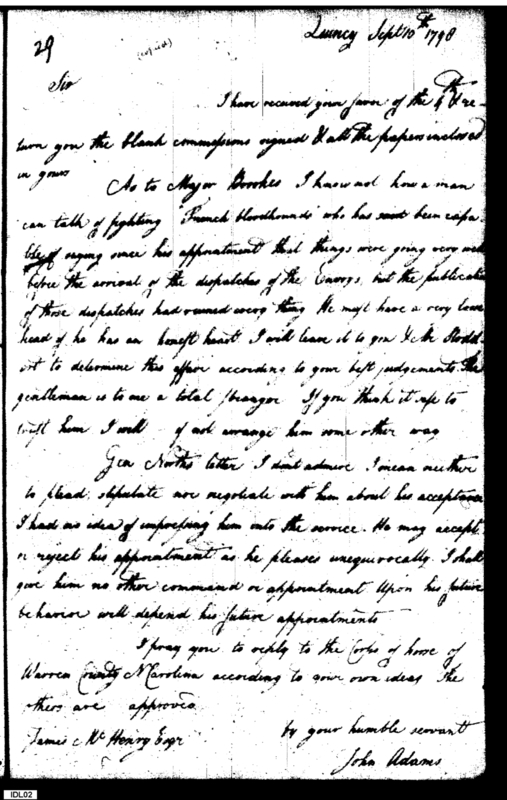 29
(copied)
Quincy Sept 10th 1798
Sir
I have received your favor of the 4th & re-
turn you the blank commissions signed & all the papers inclosed
in yours
As to Major Brookes I know not how a man
can talk of fighting French bloodhounds who has been capa-
ble of saying since his appointment that things were going very well
before the arrival of the dispatches of the Envoys, but the publication
of those dispatches had ruined every thing He must have a very loose
head if he has an honest heart. I will leave it to you & Mr Stodd-
ert to determine this affair according to your best judgements. The
gentleman is to me a total stranger If you think it safe to
trust him I will if not arrange him some other way
Gen Norths letter I dont admire I mean neither
to plead, stipulate nor negotiate with him about his acceptance
I had no idea of impressing him into the service. He may accept
or reject his appointment as he pleases unequivocally. I shall
give him no other command or appointment Upon his future
behavior will depend his future appointments
I pray you to reply to the Corps of horse of
Warren County N Carolina according to your own ideas The
others are approved
by your humble servant
James McHenry Esqr
John Adams
IDL02